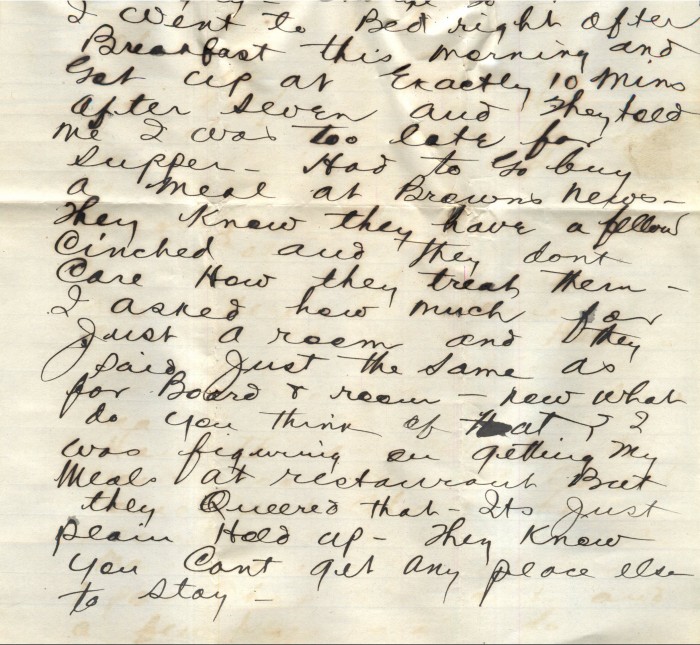 I Went to Bed right after
Breakfast this morning and
Got up at Exactly 10 Mins
after seven and They told
me I was too late for
supper - Had to Go buy
a Meal at Browns News -
They Know they have a fellow
Cinched and they dont
Care How they treat them -
I asked how much for
Just a room and they
said Just the same as
for Board & room - now what
do you think of that? I
was figuring on getting My
Meals at restaurant But
they Queered that - Its Just
plain Hold up - They Know
you Cant get any place else
to stay -